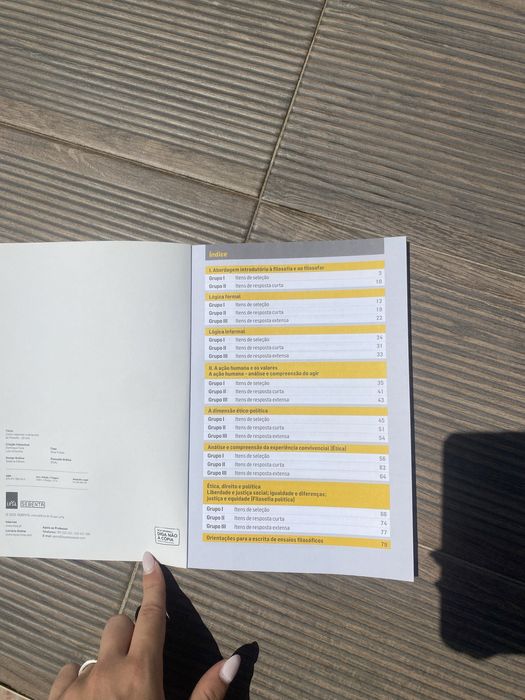 Índice
I. Abordagem introdutória à filosofia e ao filosofar
Grupo I Itens de seleção 3
Grupo II Itens de resposta curta 10
Lógica formal
Grupo I Itens de seleção 12
Grupo II Itens de resposta curta 19
Grupo III Itens de resposta extensa 22
Lógica informal
Grupo I Itens de seleção 24
Grupo II Itens de resposta curta 31
Grupo III Itens de resposta extensa 33
II. A ação humana e os valores
A ação humana - análise e compreensão do agir
Grupo I Itens de seleção 35
Grupo II Itens de resposta curta 41
Grupo III Itens de resposta extensa 43
A dimensão ético-política
Grupo I Itens de seleção 45
Grupo II Itens de resposta curta 51
Grupo III Itens de resposta extensa 54
Análise e compreensão da experiência convivencial (Ética)
Grupo I Itens de seleção 56
Grupo II Itens de resposta curta 62
Grupo III Itens de resposta extensa 64
Ética, direito e política
Liberdade e justiça social; igualdade e diferenças;
justiça e equidade (Filosofia política)
Grupo I Itens de seleção 66
Grupo II Itens de resposta curta 74
Grupo III Itens de resposta extensa 77
Orientações para a escrita de ensaios filosóficos 79
SEBENTA
DIGA NÃO
À CÓPIA